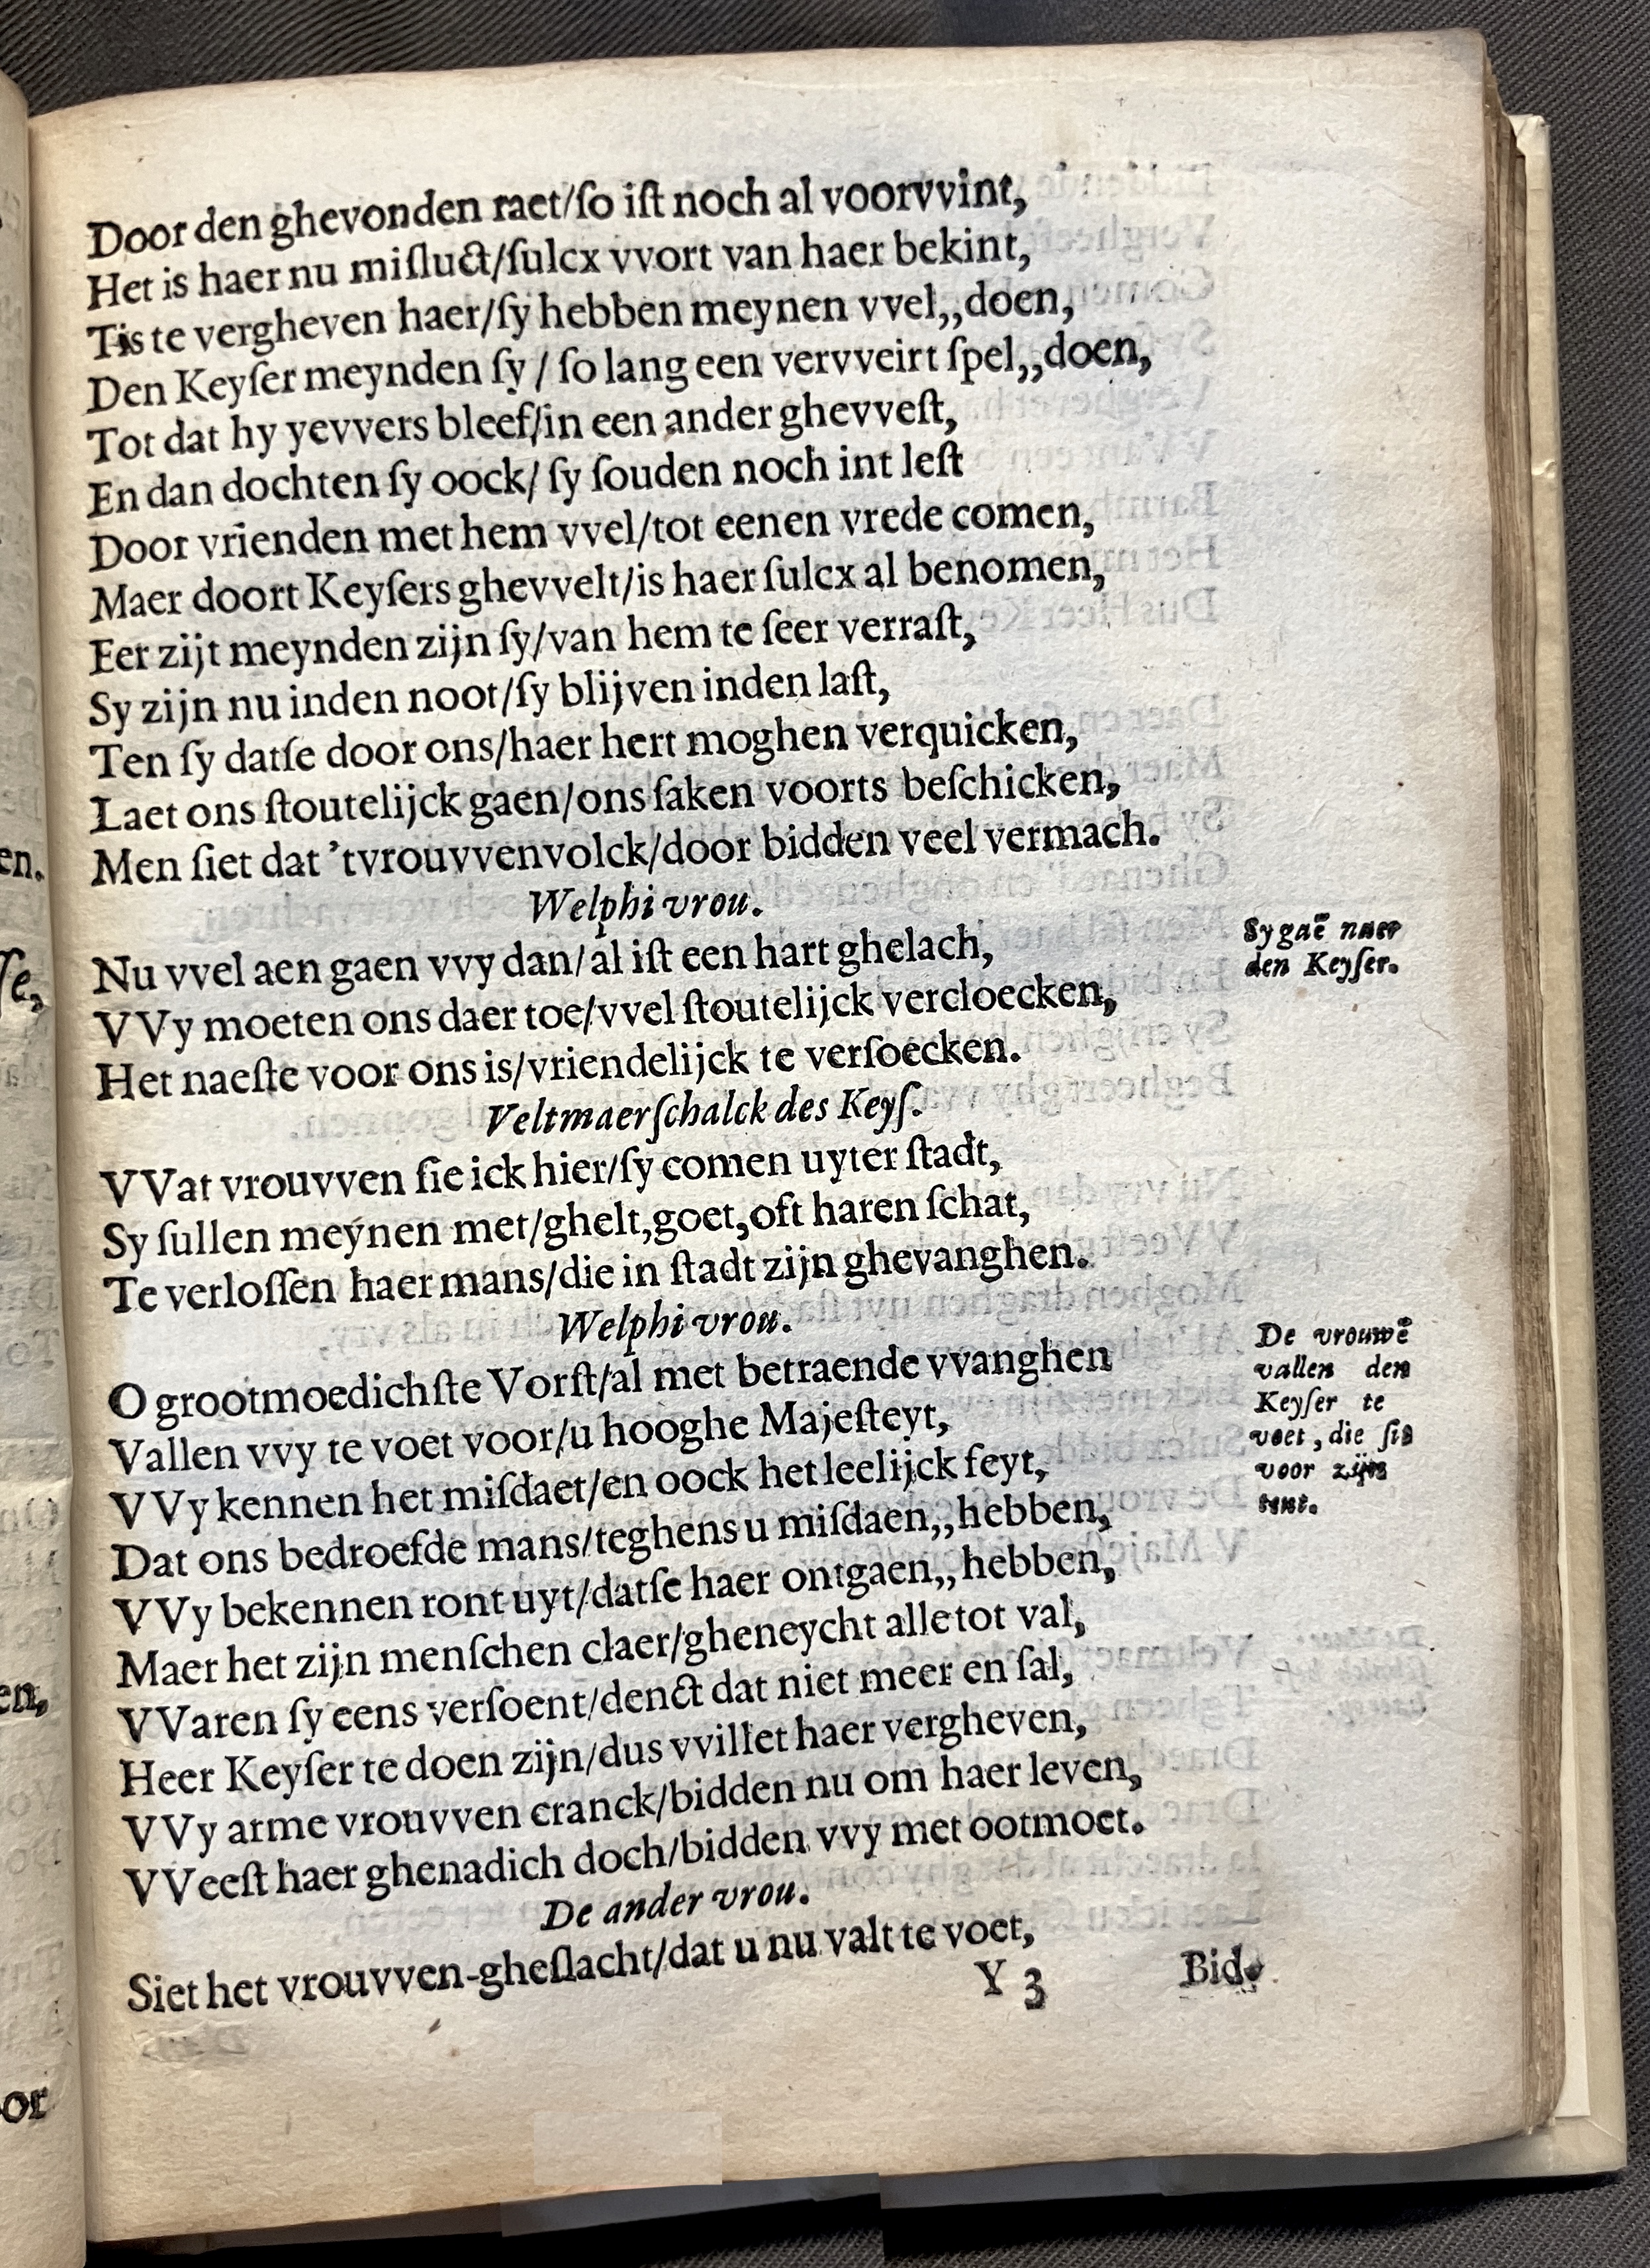 Door den ghevonden raet/ſo iſt noch al voorvvint,
Het is haer nu miſluct/ſulcx vvort van haer bekint,
Tis te vergheven haer/ſy hebben meynen vvel,,doen,
Den Keyſer meynden ſy / ſo lang een vervveirt ſpel,,doen,
Tot dat hy yevvers bleef/in een ander ghevveſt,
En dan dochten ſy oock/ ſy ſouden noch int leſt
Door vrienden met hem vvel/tot eenen vrede comen,
Maer doort Keyſers ghevvelt/is haer ſulcx al benomen,
Eer zijt meynden zijn ſy/van hem te ſeer verraſt,
Sy zijn nu inden noot/ſy blijven inden laſt,
Ten ſy datſe door ons/haer hert moghen verquicken,
Laet ons ſtoutelijck gaen/ons ſaken voorts beſchicken,
Men ſiet dat 'tvrouvvenvolck/door bidden veel vermach.
Welphi vrou.
Nu vvel aen gaen vvy dan/al iſt een hart ghelach,
Sy gaē naer
den Keyſer.
VVy moeten ons daer toe/vvel ſtoutelijck vercloecken,
Het naeſte voor ons is/vriendelijck te verſoecken.
Veltmaerſchalck des Keyſ.
VVat vrouvven ſie ick hier/ſy comen uyter ſtadt,
Sy ſullen meynen met/ghelt,goet,oft haren ſchat,
Te verloſſen haer mans/die in ſtadt zijn ghevanghen.
Welphi vrou.
O grootmoedichſte Vorſt/al met betraende vvanghen
De vrouwē
vallen den
Keyſer te
voet, die ſit
voor zijn
tent.
Vallen vvy te voet voor/u hooghe Majeſteyt,
VVy kennen het miſdaet/en oock het leelijck feyt,
Dat ons bedroefde mans/teghens u miſdaen,,hebben,
VVy bekennen ront uyt/datſe haer ontgaen,,hebben,
Maer het zijn menſchen claer/gheneycht alle tot val,
VVaren ſy eens verſoent/denct dat niet meer en ſal,
Heer Keyſer te doen zijn/dus vvillet haer vergheven,
VVy arme vrouvven cranck/bidden nu om haer leven,
VVeeſt haer ghenadich doch/bidden vvy met ootmoet.
De ander vrou.
Siet het vrouvven-gheſlacht/dat u nu valt te voet,
Y 3 Bid-